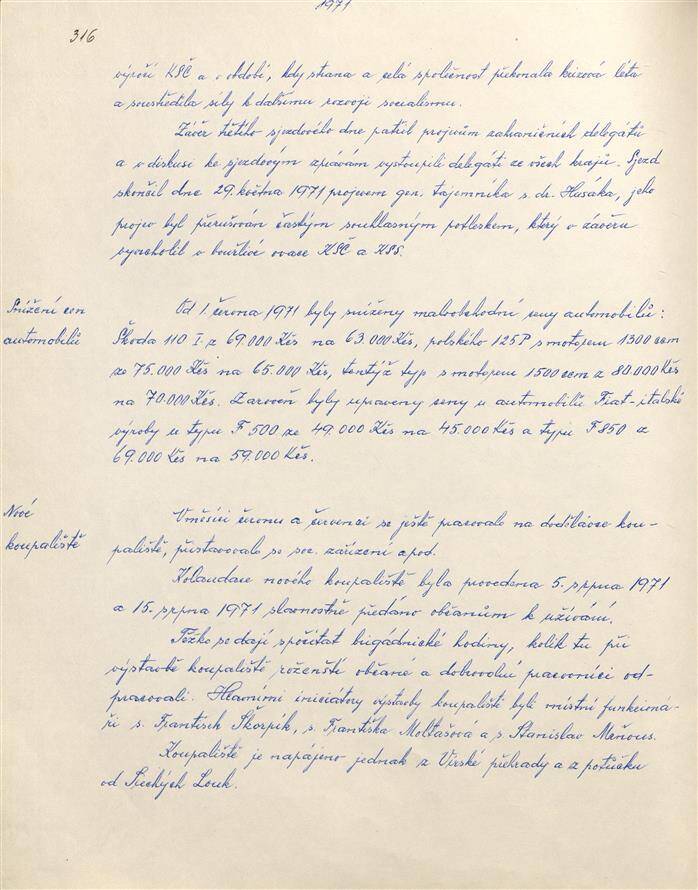 1971
316
výročí KSČ a v období, kdy strana a celá společnost překonala krizová léta
a soustředila síly k dalšímu rozvoji socialismu.
Závěr třetího sjezdového dne patřil projevům zahraničních delegátů
a v diskusi ke sjezdovým zprávám vystoupili delegáti ze všech krajů. Sjezd
skončil dne 29. května 1971 projevem gen. tajemníka s. dr. Husáka, jeho
projev byl přerušován častým souhlasným potleskem, který v závěru
vyvrcholil v bouřlivé ovace KSČ a KSS.
Snížení cen
automobilů
Od 1. června 1971 byly sníženy maloobchodní ceny automobilů:
Škoda 110 I. z 69.000 Kčs na 63 000 Kčs, polského 125P s motorem 1300 ccm
ze 75.000 Kčs na 65.000 Kčs, tentýž typ s motorem 1500 ccm z 80.000 Kčs
na 70.000 Kčs. Zároveň byly upraveny ceny u automobilů Fiat-italské
výroby u typu F 500 ze 49.000 Kčs na 45.000 Kčs a typu F 850 z
69.000 Kčs na 59.000 Kčs.
Nové
koupaliště
V měsíci červnu a červenci se ještě pracovalo na dodělávce kou-
paliště, přistavovalo se soc. zařízení apod.
Kolaudace nového koupaliště byla provedena 5. srpna 1971
a 15. srpna 1971 slavnostně předáno občanům k užívání.
Těžko se dají spočítat brigádnické hodiny, kolik tu při
výstavbě koupaliště roženští občané a dobrovolní pracovníci od-
pracovali. Hlavními iniciátory výstavby koupaliště byli místní funkcioná-
ři s. František Škorpík, s. Františka Moltašová a s. Stanislav Meňous.
Koupaliště je napájeno jednak z Vírské přehrady a z potůčku
od Suchých Louk.